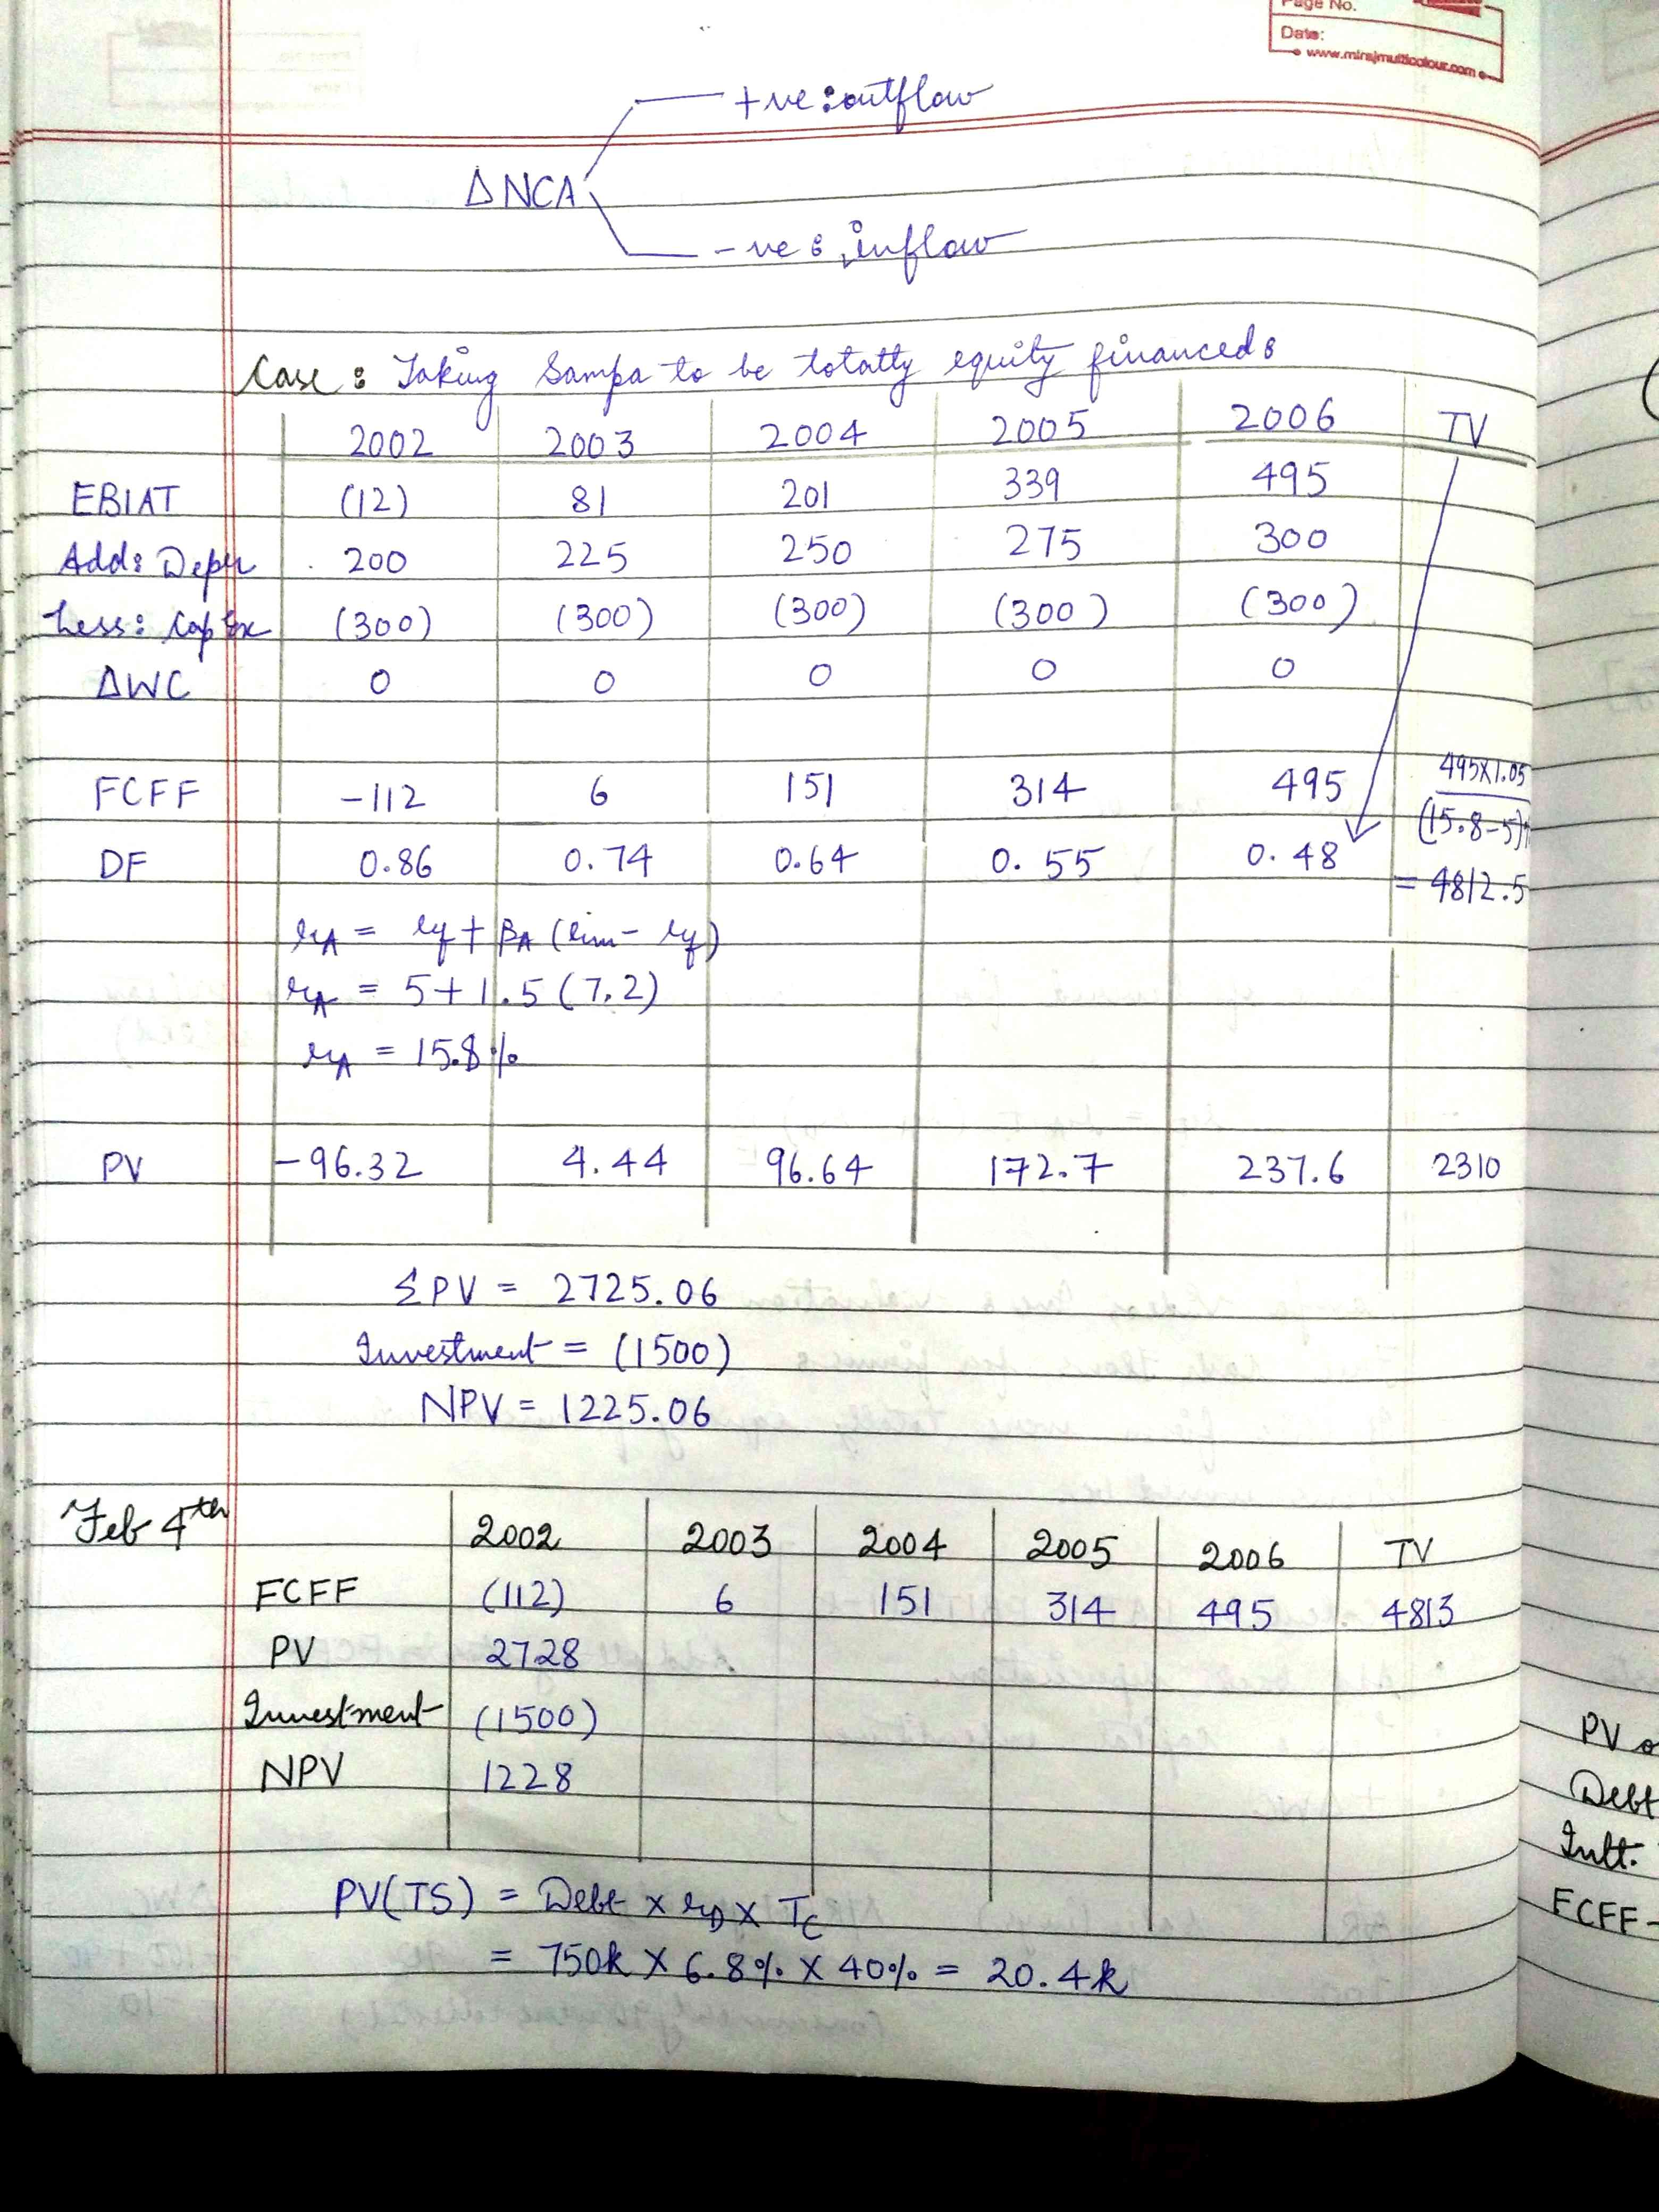 Page No.
Date:
www.mirajmulticolour.com
+ve : outflow
ΔNCA
-ve : inflow
Case : Taking Sampa to be totally equity financed :
2002 2003 2004 2005 2006 TV
EBIAT (12) 81 201 339 495
Add: Depr 200 225 250 275 300
Less: Cap Ex (300) (300) (300) (300) (300)
ΔWC 0 0 0 0 0
FCFF -112 6 151 314 495 495X1.05
(15.8-5)%
DF 0.86 0.74 0.64 0.55 0.48 = 4812.5
rA = rf + βA (rm - rf)
rA = 5+1.5 (7.2)
rA = 15.8%
PV -96.32 4.44 96.64 172.7 237.6 2310
ΣPV = 2725.06
Investment = (1500)
NPV = 1225.06
Feb 4th 2002 2003 2004 2005 2006 TV
FCFF (112) 6 151 314 495 4813
PV 2728
Investment (1500)
NPV 1228
PV(TS) = Debt x rD x Tc
= 750k X 6.8% X 40% = 20.4k
PV
Debt
Intt.
FCFF -